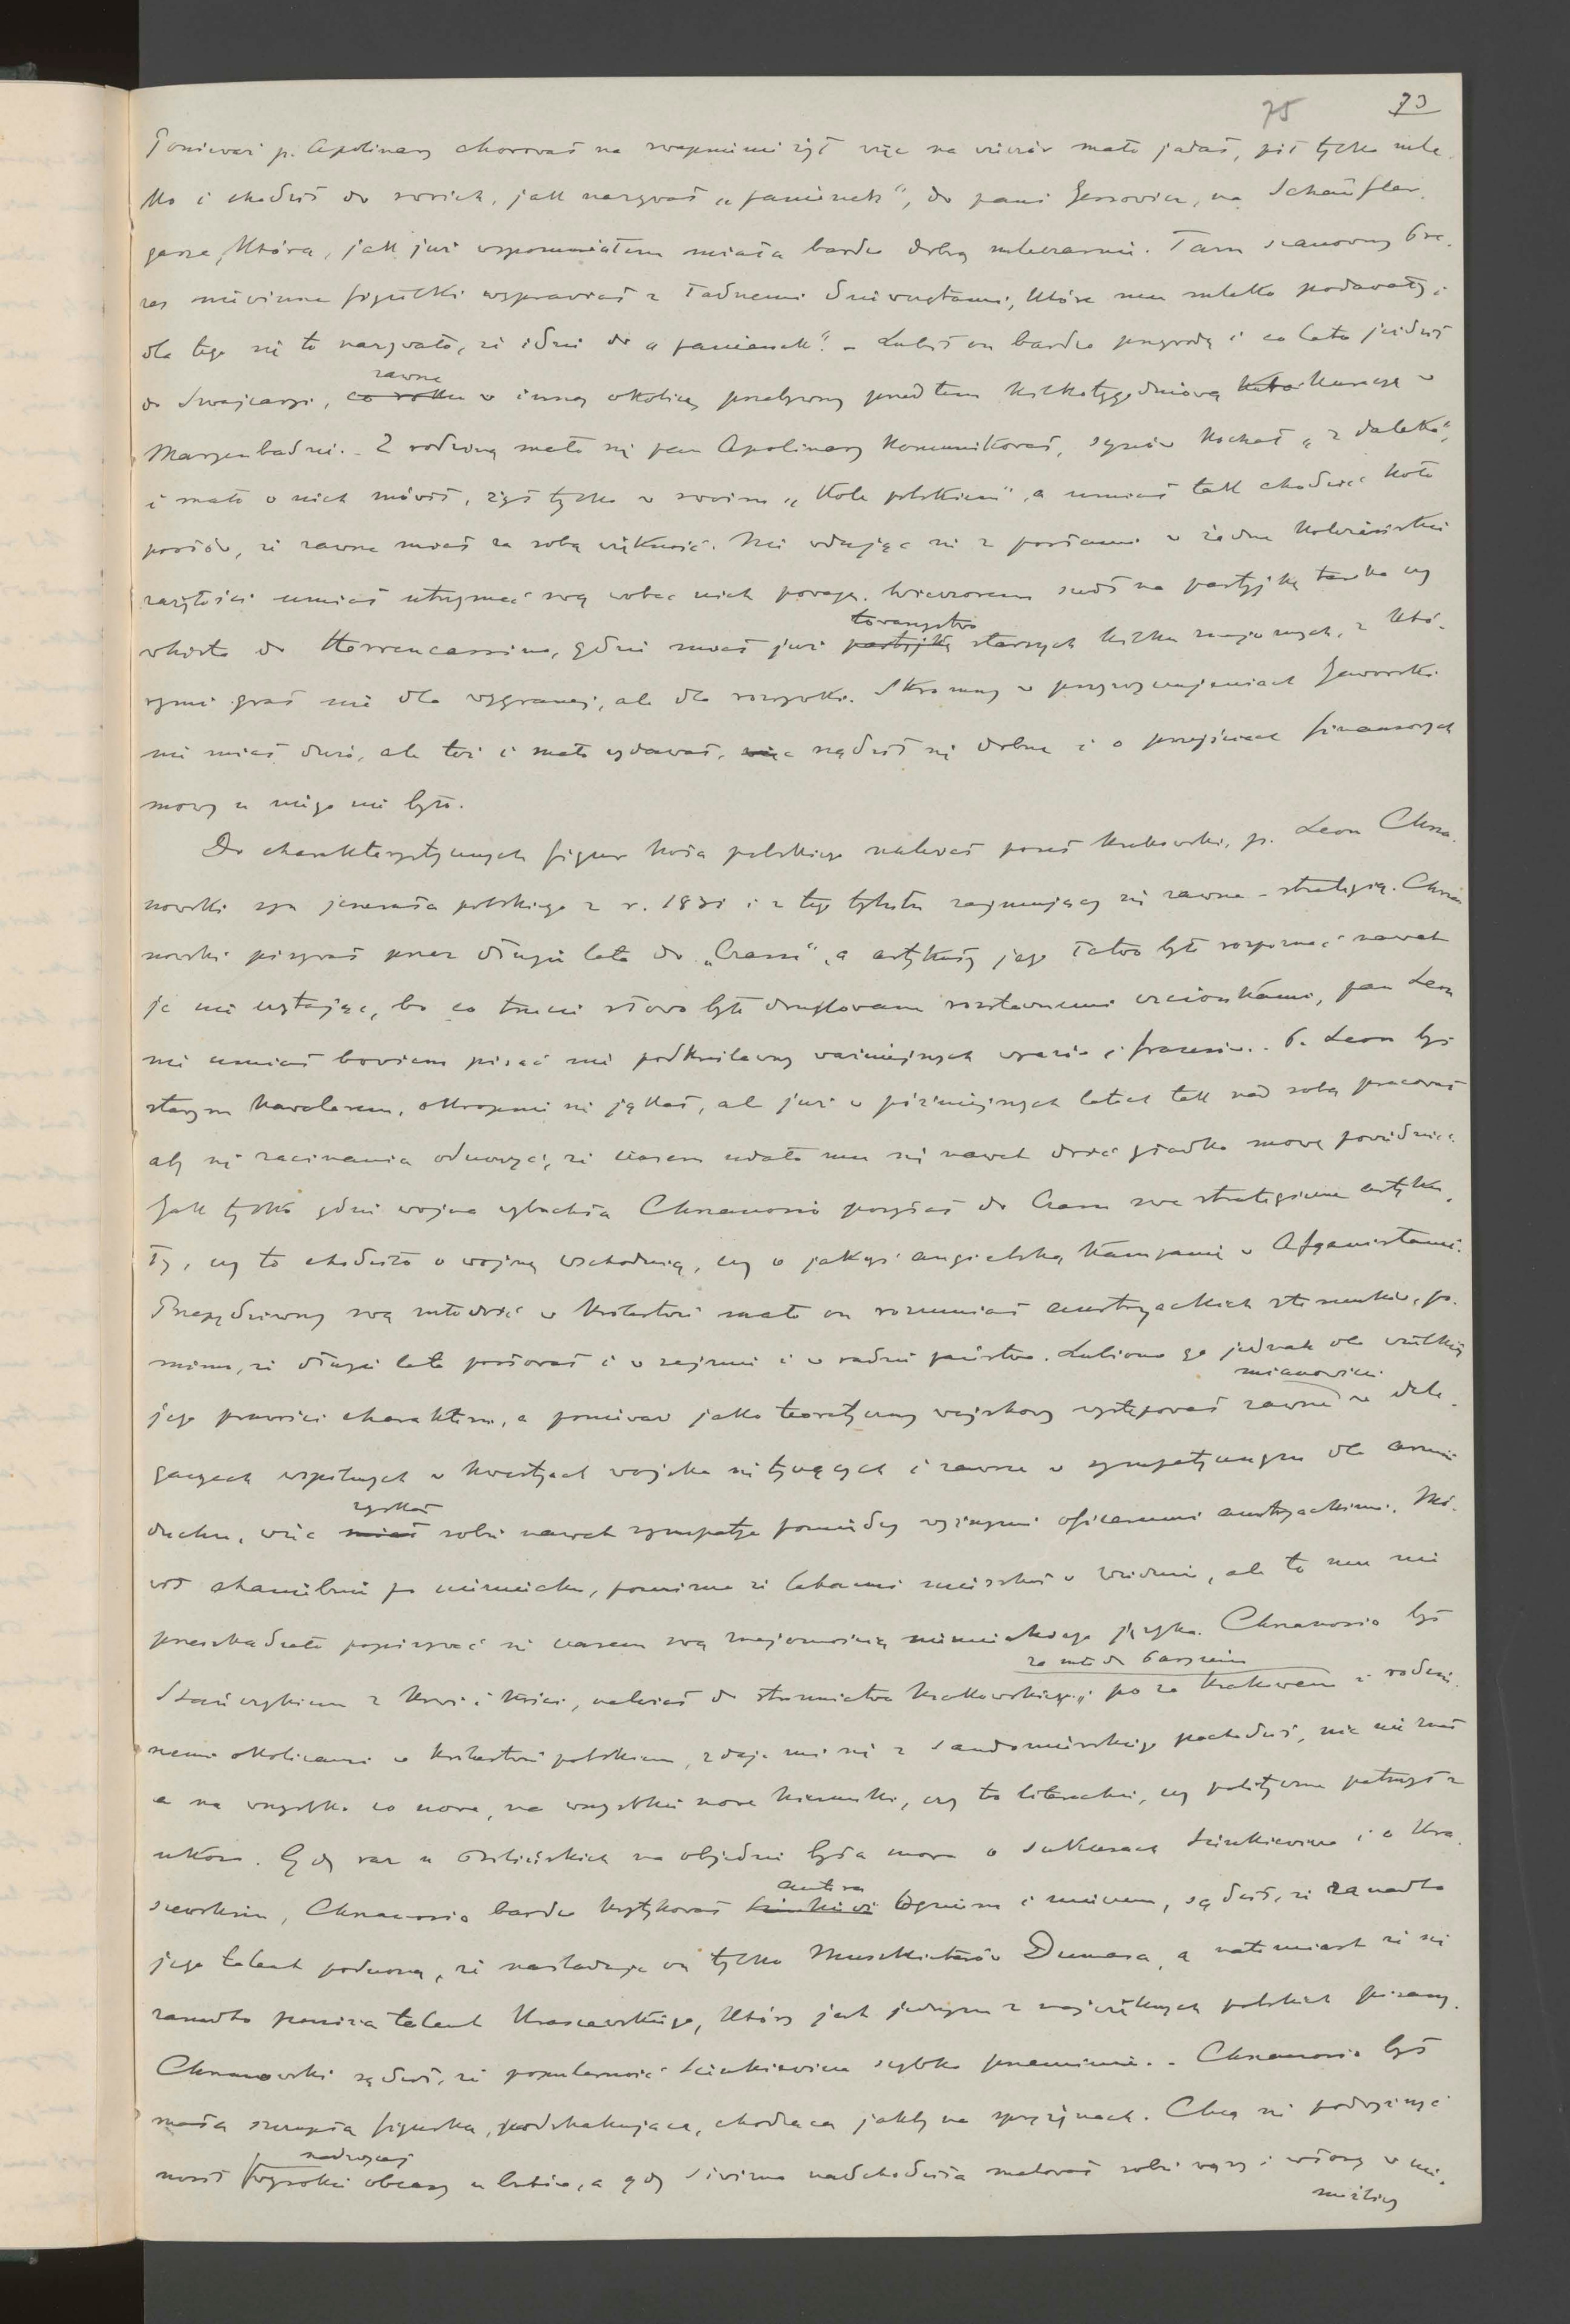 75 73
Ponieważ p. Apolinary chorował na zwapnienie żył więc na wieczór mało jadał, pił tylko mle-
ko i chodził do swoich, jak nazywał „panienek", do pani Jessowicz, na Schaufler-
gasse, która, jak już wspomniałem miała bardzo dobrą mleczarnię. Tam szanowny Pre-
zes niewinne figielki wyprawiał z ładnemi dziewczętami, które mu mleko podawały,
dla tego się to nazywało, że idzie do „panienek". – Lubił on bardzo przyrodę i co lato jeździł
do Szwajcaryi, co roku zawsze w inną okolicę, przebywszy przedtem kilkotygodniową kuracyę w
Maryenbadzie. – Z rodziną mało się pan Apolinary komunikował, synów kochał „z daleka",
i mało o nich mówił, żył tylko w swoim „Kole polskiem", a umiał tak chodzić koło
posłów, że zawsze miał za sobą większość. Nie wdając się z posłami w żadne koleżeńskie
zażyłości umiał utrzymać swą wobec nich powagę. Wieczorem szedł na partyjkę taroka czy
whista do Herrencassino, gdzie miał już partyjkę towarzystwo starszych kilku znajomych, z któ-
rymi grał nie dla wygranej, ale dla rozrywki. Skromny w przyzwyczajeniach Jaworski
nie miał dużo, ale też i mało wydawał, więc rządził się dobrze i o przejściach finansowych
mowy u niego nie było.
Do charakterystycznych figur koła polskiego należał poseł krakowski, p. Leon Chrza-
nowski syn jenerała polskiego z r. 1831 i z tego tytułu zajmujący się zawsze – strategią. Chrza-
nowski pisywał przez długie lata do „Czasu", a artykuły jego łatwo było rozpoznać nawet
je nie czytając, bo co trzecie słowo było drukowane rozstawnemi czcionkami, pan Leon
nie umiał bowiem pisać nie podkreślawszy ważniejszych wyrazów i frazesów. P. Leon był
starym kawalerem, okropnie się jąkał, ale już w późniejszych latach tak nad sobą pracował
aby się zacinania oduczyć, że czasem udało mu się nawet dość gładko mowę powiedzieć.
Jak tylko gdzie wojna wybuchła Chrzanowski posyłał do Czasu swe strategiczne artyku-
ły, czy to chodziło o wojnę wschodnią, czy o jakąś angielską kampanię w Afganistanie.
Przepędziwszy swą młodość w Królestwie mało on rozumiał austryackich stosunków, po-
mimo, że długie lata posłował i w sejmie i w radzie państwa. Lubiono go jednak dla wielkiej
jego prawości charakteru, a ponieważ jako teoretyczny wojskowy występował zawsze mianowicie w dele-
gacyach wspólnych w kwestyach wojska się tyczących i zawsze w sympatycznym dla armii
duchu, więc miał zyskał sobie nawet sympatye pomiędzy wyższymi oficerami austryackimi. Mó-
wił haniebnie po niemiecku, pomimo że latami mieszkał w Wiedniu, ale to mu nie
przeszkadzało popisywać się czasem swą znajomością niemieckiego języka. Chrzanowski był
Stańczykiem z krwi i kości, należał do stronnictwa krakowskiego, po za Krakowem za młodu Paryżem i rodzin-
nemi okolicami w Królestwie polskiem, zdaje mi się z Sandomierskiego pochodził, nic nie znał
a na wszystko co nowe, na wszystkie nowe kierunki, czy to literackie, czy polityczne patrzył z
ukosa. Gdy raz u Bilińskich na objedzie była mowa o sukcesach Sienkiewicza i o Kra-
szewskim, Chrzanowski bardzo krytykował Sienkiewi autora Ogniem i mieczem, sądził, że zanadto
jego talent podnoszą, że naśladuje on tylko Muszkieterów Dumasa, a natomiast że się
zanadto poniża talent Kraszewskiego, który jest jednym z największych polskich pisarzy.
Chrzanowski sądził, że popularność Sienkiewicza szybko przeminie. – Chrzanowski był
mała szczupła figurka, podskakująca, chodząca jakby na sprężynach. Chcąc się podwyższyć
nosił nadzwyczaj wysokie obcasy u butów, a gdy siwizna nadchodziła malował sobie wąsy i włosy w nie-
możliwy